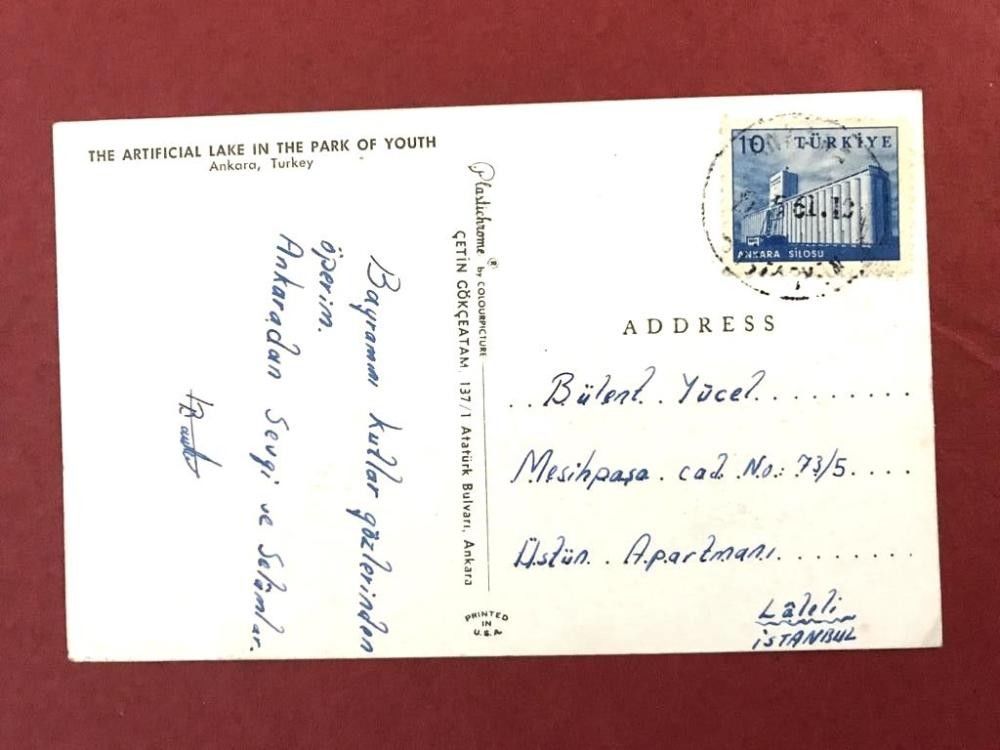 THE ARTIFICIAL LAKE IN THE PARK OF YOUTH
Ankara, Turkey
Bayramını kutlar gözlerinden
öperim.
Ankaradan Sevgi ve Selâmlar.
Plastichrome ® by COLOURPICTURE
ÇETİN GÖKÇEATAM, 137/1 Atatürk Bulvarı, Ankara
PRINTED
IN
U.S.A.
10 TÜRKİYE
5 61.12
ANKARA SİLOSU
ADDRESS
Bülent Yücel
Mesihpaşa cad. No: 73/5
Üstün Apartmanı
Lâleli
İSTANBUL